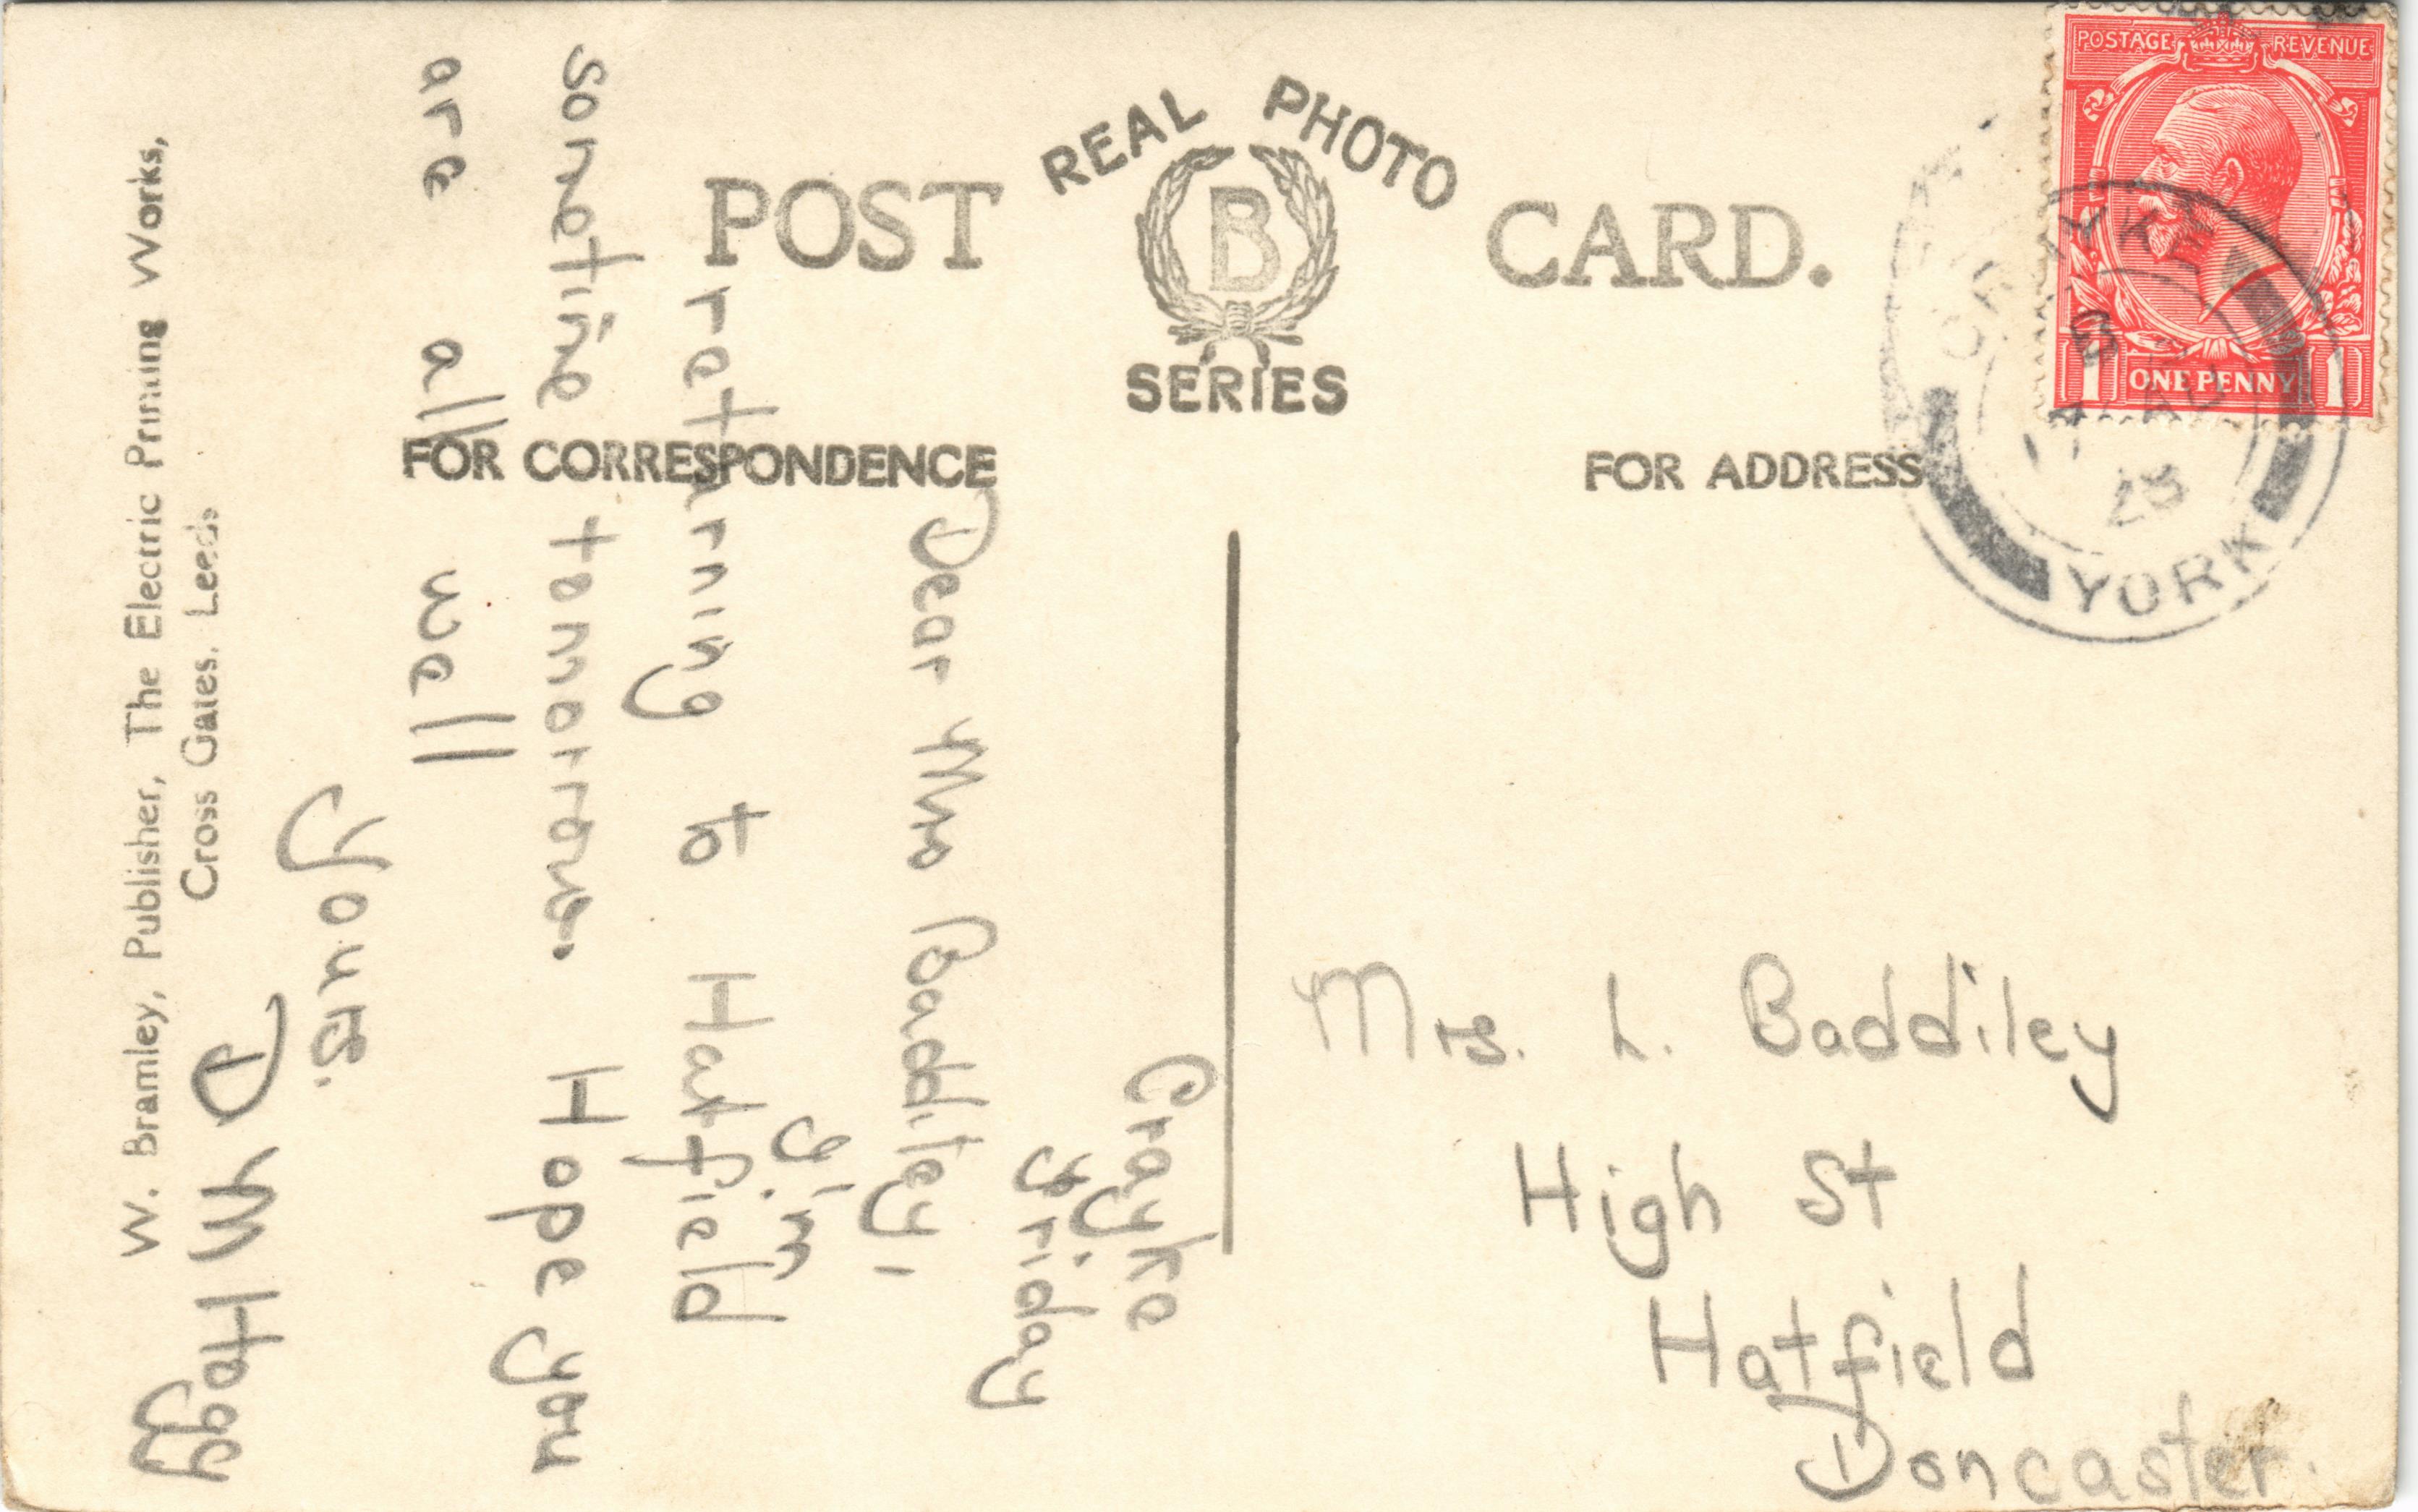 POST CARD.
REAL PHOTO
B
SERIES
FOR CORRESPONDENCE
FOR ADDRESS
POSTAGE REVENUE
1 ONE PENNY 1
CRAYKE
YORK
Crayke
Friday
Dear Mrs Baddiley,
I'm
returning to Hatfield
sometime tomorrow. Hope you
are all well
Yours.
D M
Mrs. L. Baddiley
High St
Hatfield
Doncaster.
W. Bramley, Publisher, The Electric Printing Works,
Cross Gates, Leeds